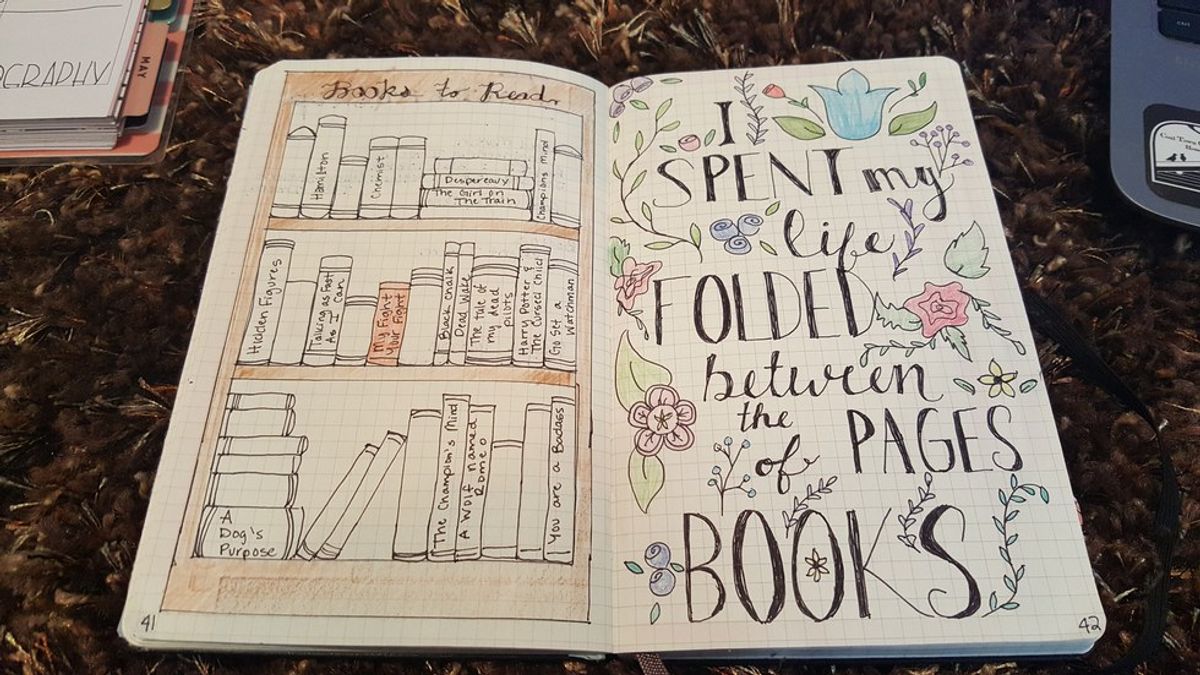 OGRAPHY
MAY
Books to Read
Hamilton
Chemist
Despereavy
The Girl on
The Train
Champions Mind
Hidden Figures
Talking as Fast
As I Can
My Fight
Your Fight
Black chalk
Dead Wake
The tale of
my dead
pilots
Harry Potter &
The Cursed Child
Go Set a
Watchman
A
Dog's
Purpose
The Champion's Mind
A Wolf named
Romeo
You are a Badass
41
I
SPENT my
life
FOLDED
between
the
of PAGES
BOOKS
42